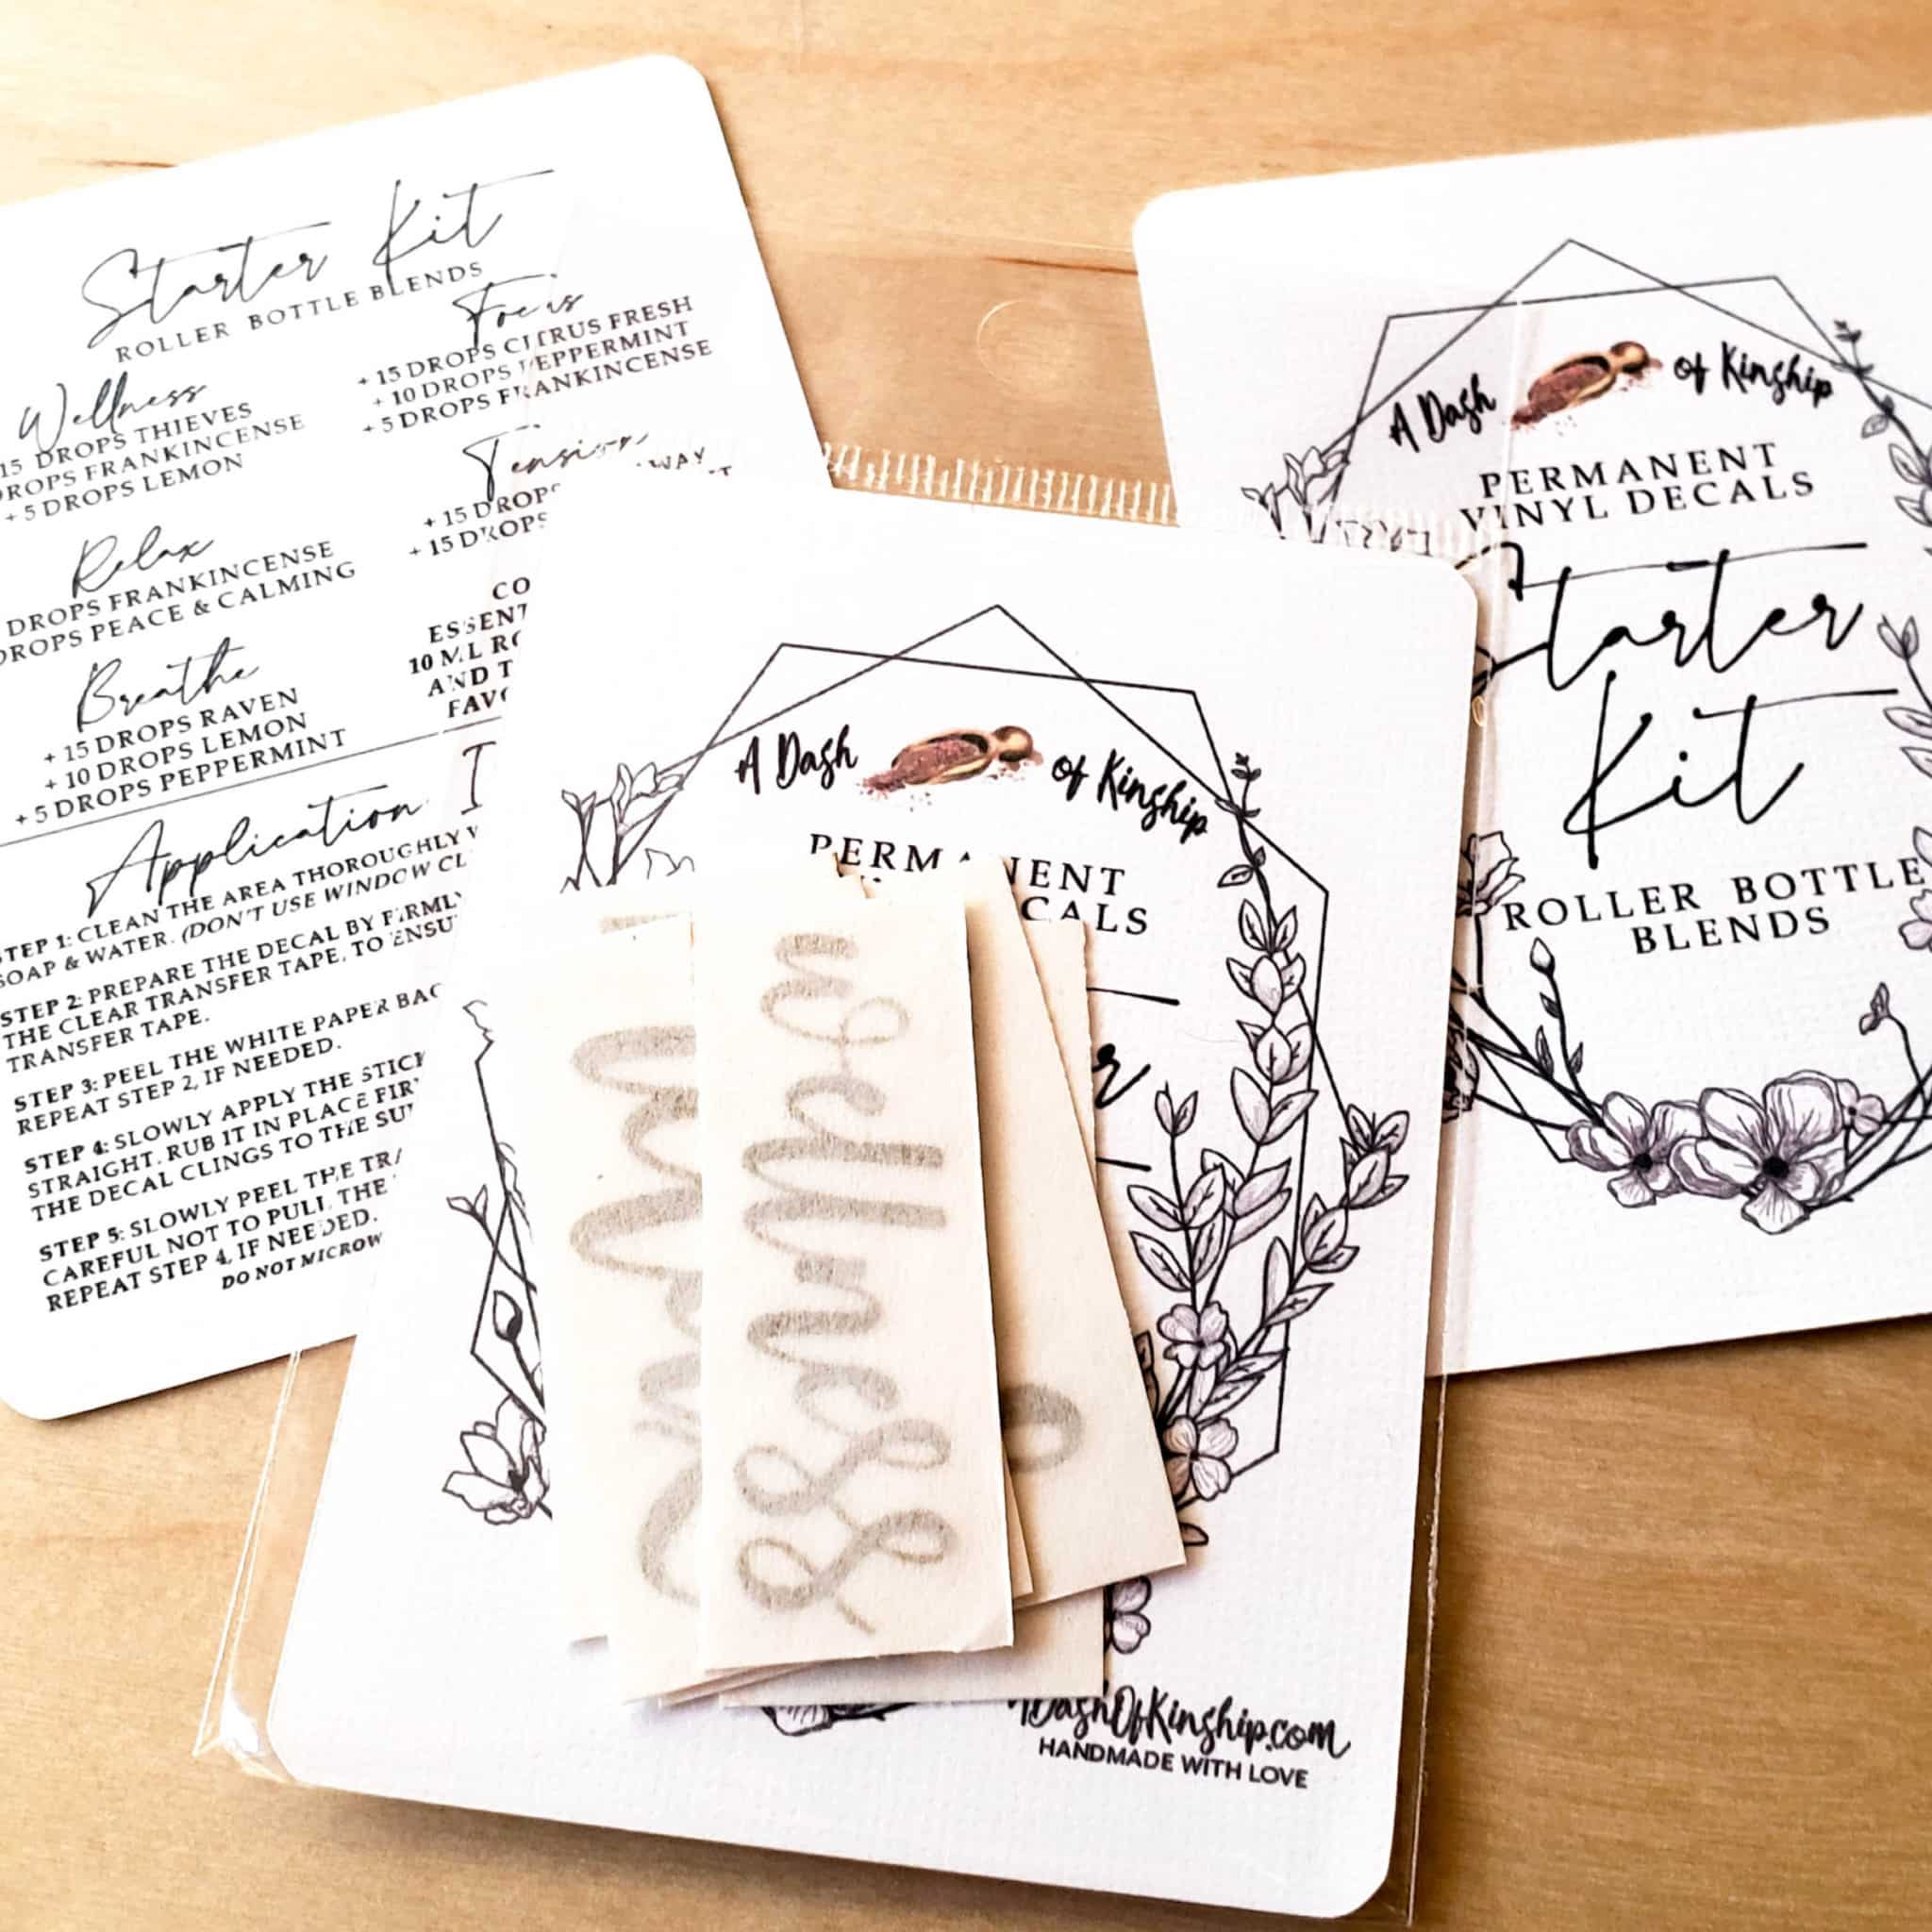 Starter Kit
ROLLER BOTTLE BLENDS
Wellness
15 DROPS THIEVES
DROPS FRANKINCENSE
+ 5 DROPS LEMON
Relax
DROPS FRANKINCENSE
DROPS PEACE & CALMING
Breathe
+ 15 DROPS RAVEN
+ 10 DROPS LEMON
+ 5 DROPS PEPPERMINT
Focus
+ 15 DROPS CITRUS FRESH
+ 10 DROPS PEPPERMINT
+ 5 DROPS FRANKINCENSE
Tension
+ 15 DROPS WAY
+ 15 DROPS
10 ML
AND
Application
STEP 1: CLEAN THE AREA THOROUGHLY
SOAP & WATER. (DON'T USE WINDOW
STEP 2: PREPARE THE DECAL BY FIRMLY
THE CLEAR TRANSFER TAPE, TO
TRANSFER TAPE.
STEP 3: PEEL THE WHITE PAPER
REPEAT STEP 2, IF NEEDED.
STEP 4: SLOWLY APPLY THE
STRAIGHT. RUB IT IN PLACE
THE DECAL CLINGS TO THE
STEP 5: SLOWLY PEEL THE
CAREFUL NOT TO PULL THE
REPEAT STEP 4, IF NEEDED.
DO NOT
A Dash of Kinship
PERMANENT
VINYL DECALS
Starter
Kit
ROLLER BOTTLE
BLENDS
A Dash of Kinship
PERMANENT
wellness
ADashOfKinship.com
HANDMADE WITH LOVE